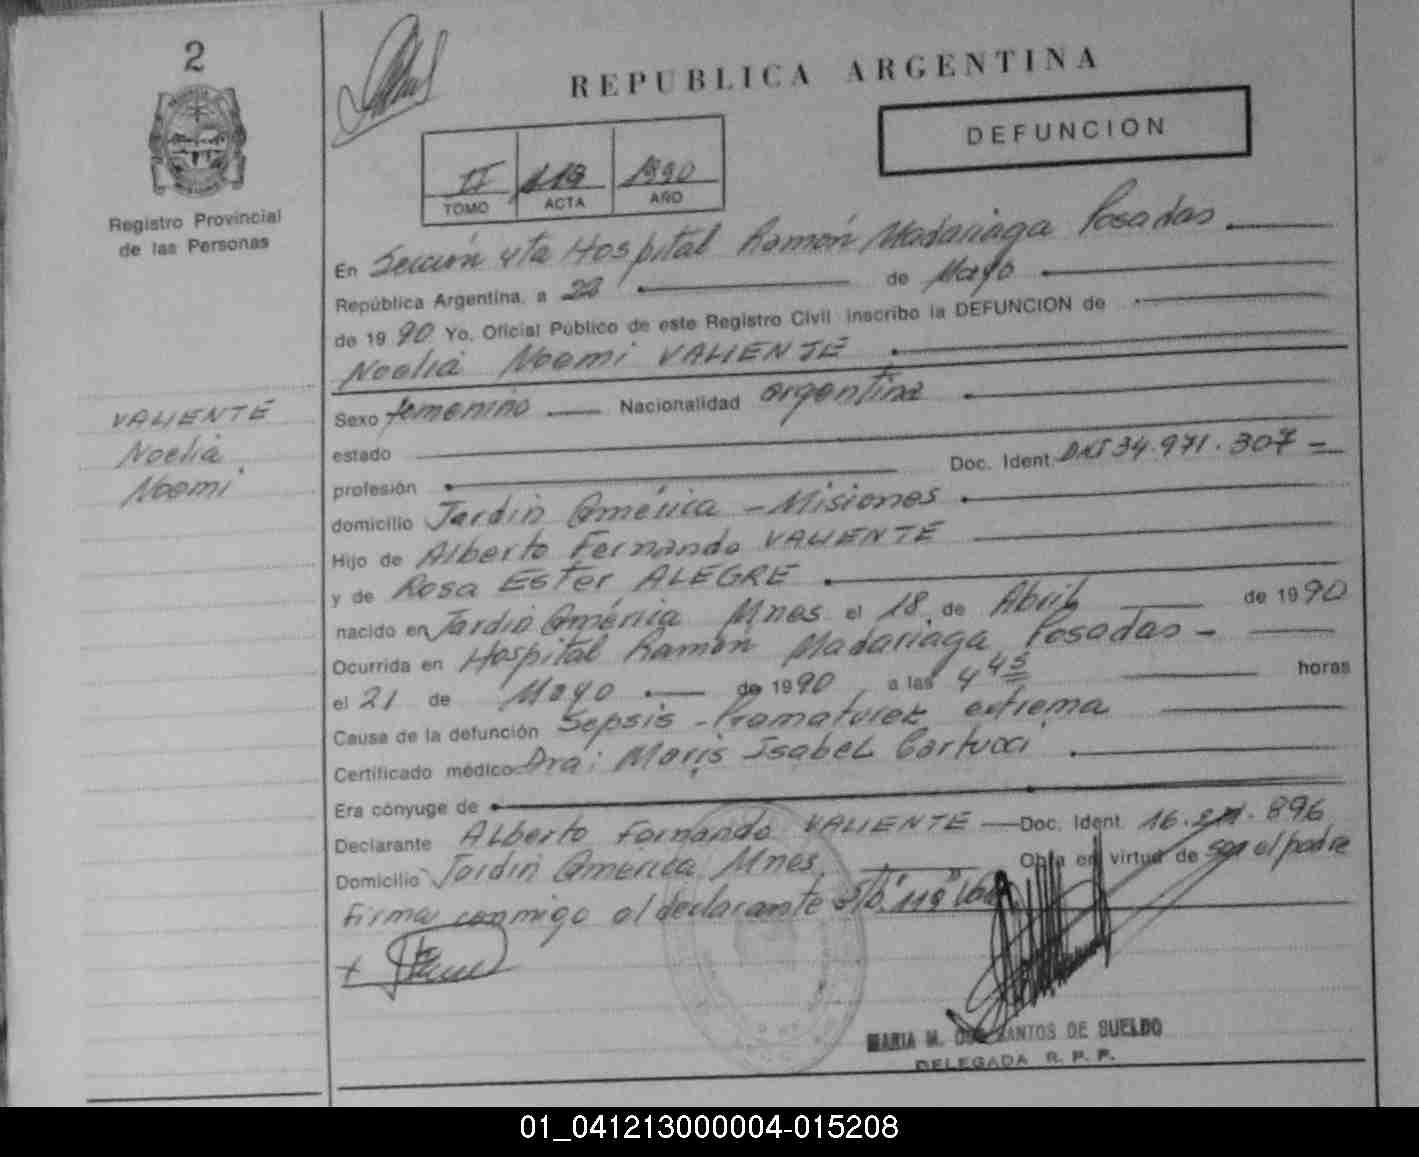 2
REPUBLICA ARGENTINA
DEFUNCION
II 119 1990
TOMO ACTA AÑO
Registro Provincial
de las Personas
En Sección 4ta Hospital Ramón Madariaga Posadas
República Argentina, a 22 de Mayo
de 1990 Yo, Oficial Público de este Registro Civil inscribo la DEFUNCION de
Noelia Noemi VALIENTE
VALIENTE
Noelia
Noemi
Sexo femenino Nacionalidad argentina
estado
profesión Doc. Ident. DNI 34.971.307
domicilio Jardin América - Misiones
Hijo de Alberto Fernando VALIENTE
y de Rosa Ester ALEGRE
nacido en Jardin América Mnes el 18 de Abril de 1990
Ocurrida en Hospital Ramón Madariaga Posadas -
el 21 de Mayo de 1990 a las 4 45 horas
Causa de la defunción Sepsis - Prematurez extrema
Certificado médico Dra: Maris Isabel Cartucci
Era cónyuge de
Declarante Alberto Fernando VALIENTE Doc. Ident. 16. .896
Domicilio Jardin América Mnes. Obra en virtud de ser el padre
Firma conmigo el declarante 119
MARIA M. DOS SANTOS DE SUELDO
DELEGADA R. P. P.
01_041213000004-015208